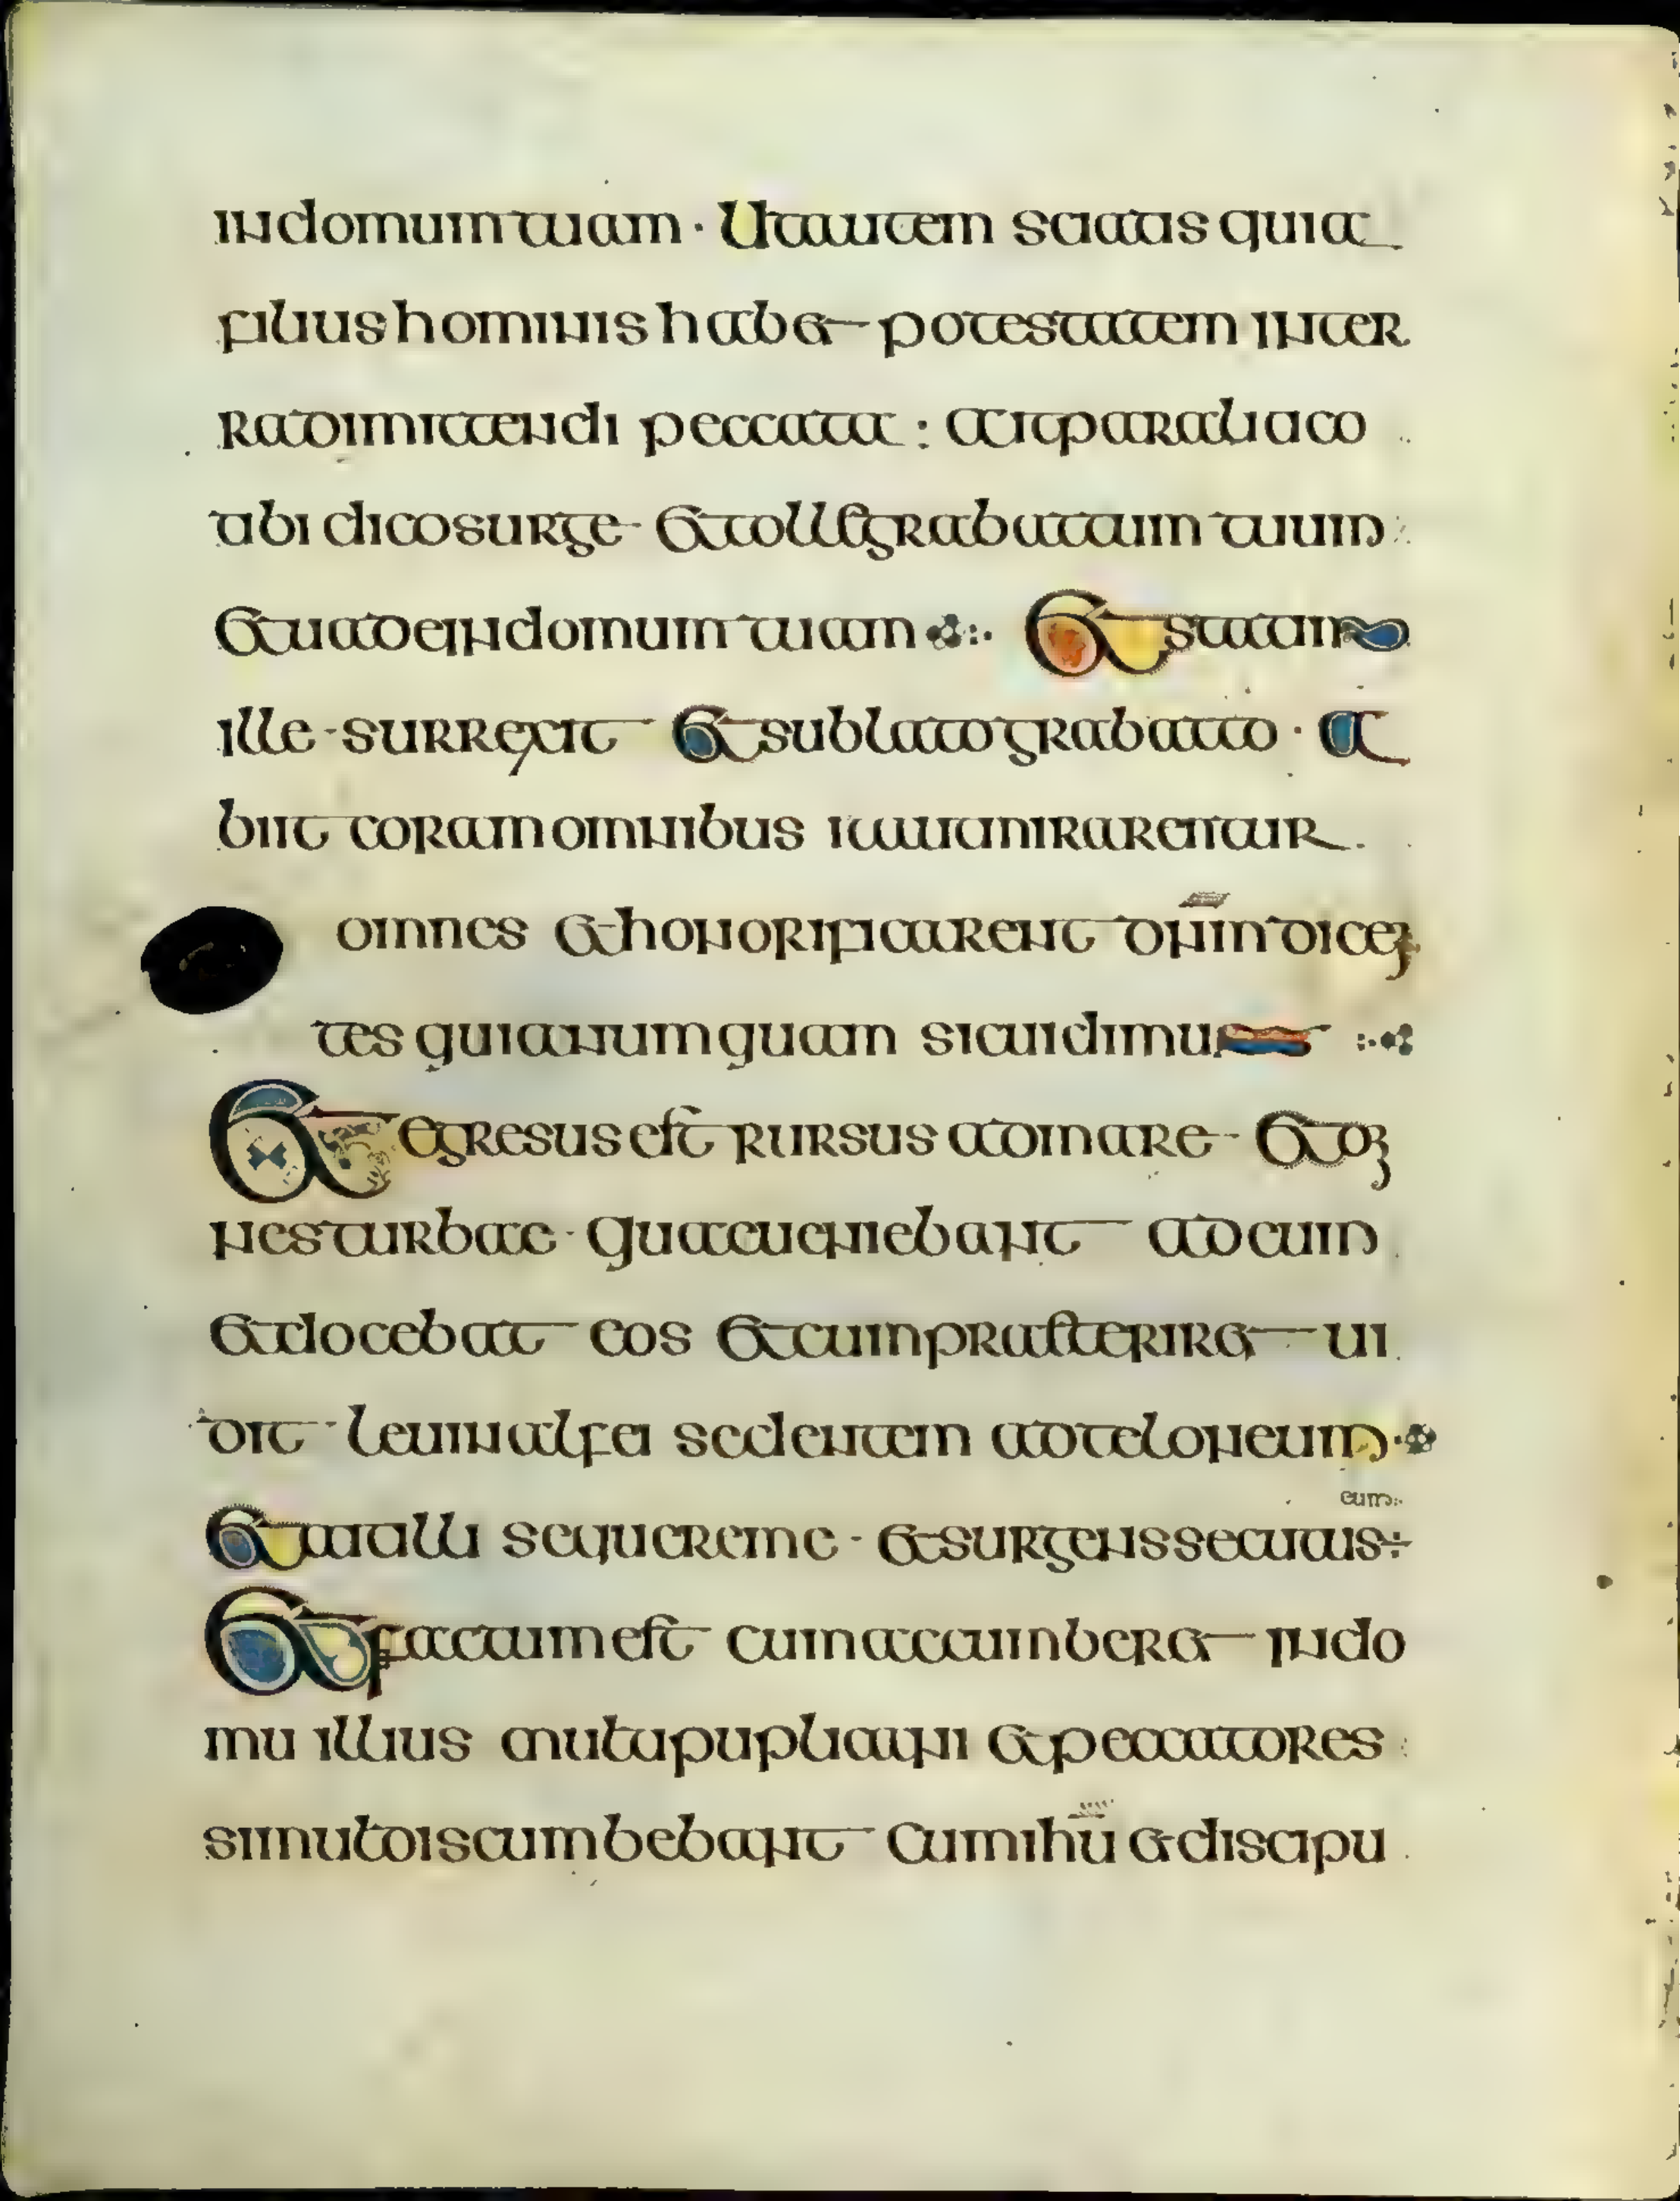 indomum tuam · Ut autem sciatis quia
filius hominis habet potestatem inter
ra dimittendi peccata : ait paralitico
tibi dico surge · et tolle grabattum tuum
et uade in domum tuam :· Et statim
ille · surrexit et sublato grabatto · a
biit coram omnibus ita ut ammirarentur .
omnes et honorificarent dn̄m dicen
tes quia numquam sic uidimus :·
Et egresus est rursus ad mare · et om
nes turbae · quae ueniebant ad eum
et docebat eos et cum praeteriret ui
dit · leuin alfei sedentem ad teloneum ·
eum :·
Et ait illi sequere me · et surgens secutus ÷
Et factum est cum accumberet in do
mu illius multi puplicani et peccatores
simul discumbebant cum ihū et discipu